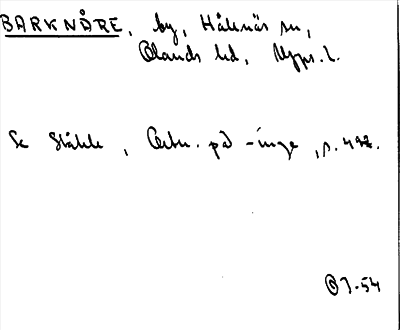 BARKNÅRE, by, Hållnäs sn,
Olands hd, Upps. l.
Se Ståhle, Ortn. på -inge, s. 492.